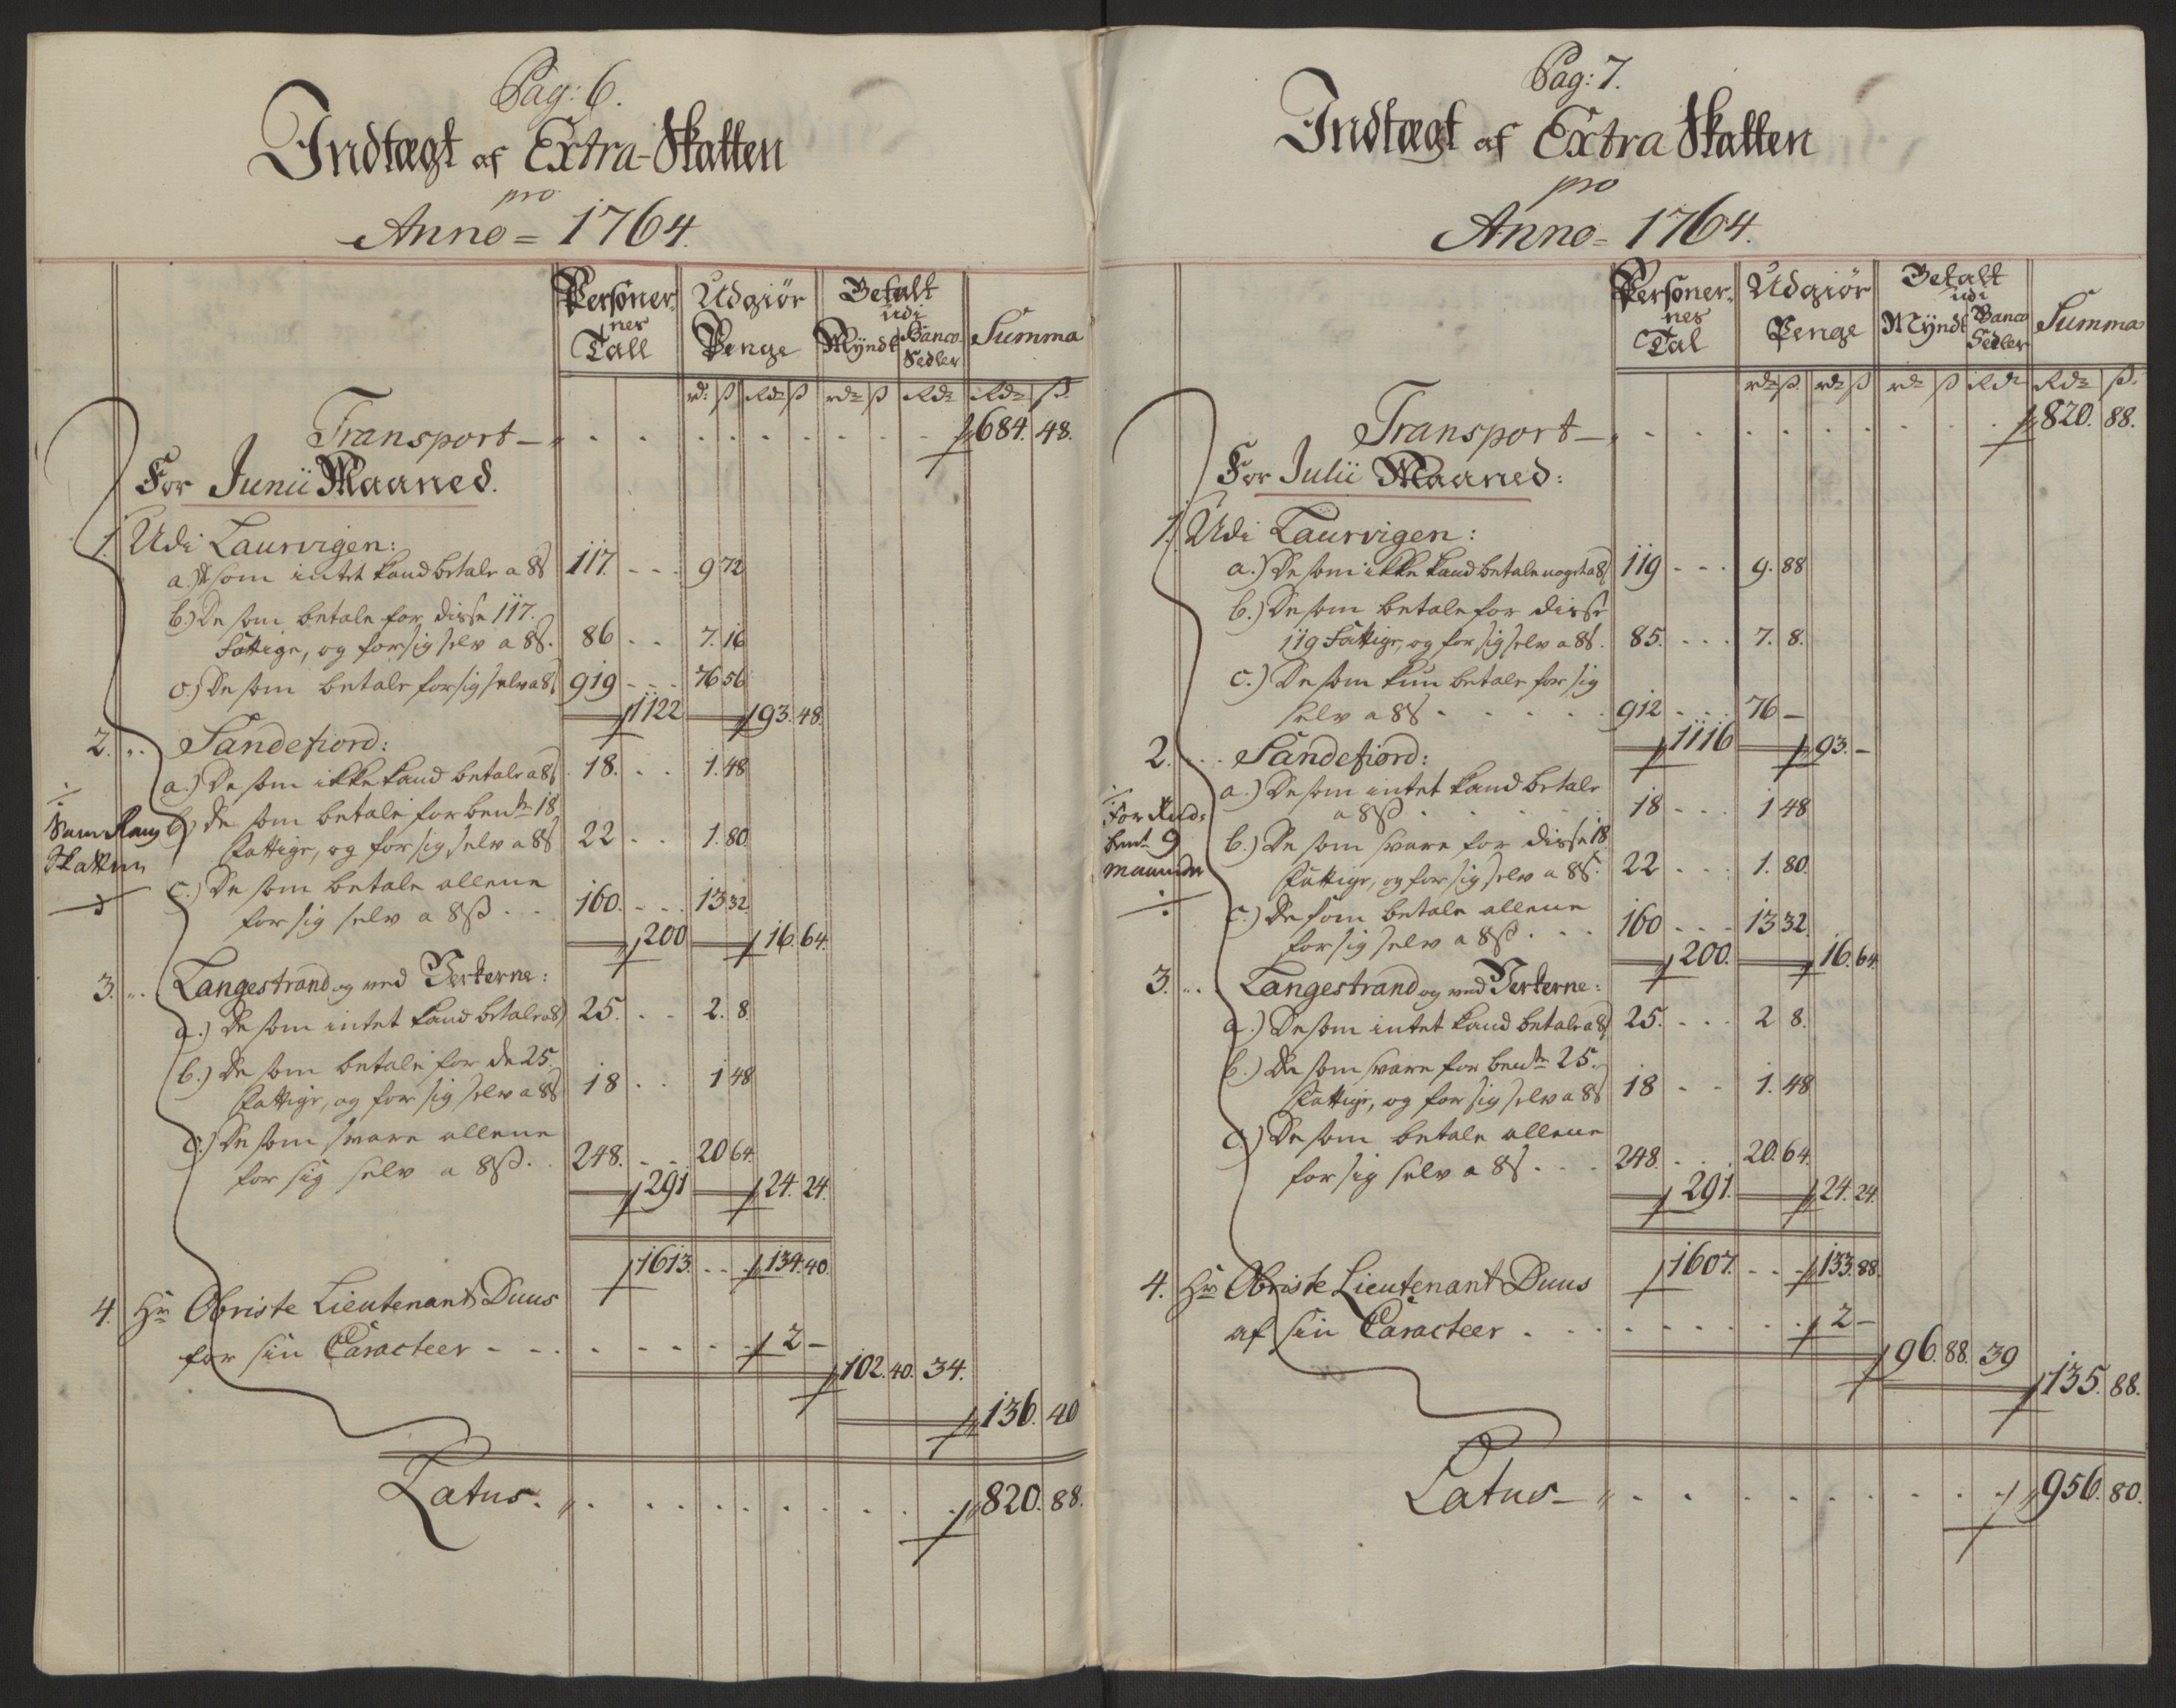 Pag: 6.
Indtægt af Extra-Skatten
pro
Anno = 1764.
Personer-
nes
Tall
Udgiør
Penge
Betalt
udi
Myndt
Banco
Sedler
Summa
rd: ß Rdr ß rdr ß Rdr Rdr ß.
Transport — 684. 48.
For Junii Maaned.
1. Udi Laurvigen:
a.) De som intet kand betale a 8ß 117. - - - 9 72
b.) De som betale for disse 117.
Fattige, og for sig selv a 8ß. 86 - - 7. 16
c.) De som betale for sig selv a 8ß 919 - - - 76 56
1122 93. 48.
2. „. Sandefiord:
a.) De som ikke kand betale a 8ß 18. - - 1. 48
b.) de som betale for bemte 18
Fattige, og for sig selv a 8ß 22 - - 1. 80
c.) De som betale allene
for sig selv a 8ß - - 160. - - - 13 32
200 16. 64.
÷
Sam Rang
Skatten
3. „. Langestrand og ved Verkerne:
a.) De som intet kand betale a 8ß 25. - - 2. 8.
b.) De som betale for de 25.
Fattige, og for sig selv a 8ß 18 - - 1 48
c.) De som svare allene
for sig selv a 8ß. - 248. - - 20 64.
291 24. 24.
1613. - - 134. 40.
4. Hr Obriste Lieutenant Duus
for sin Caracteer - - - 2 —
102. 40. 34.
136. 40
Latus. 820. 88.
Pag: 7.
Indtægt af Extra Skatten
pro
Anno = 1764.
Personer-
nes
Tal
Udgiør
Penge
Betalt
udi
Myndt
Banco
Sedler
Summa
rdr ß. rdr ß rdr ß Rdr Rdr ß.
Transport — 820. 88.
For Julii Maaned:
1. Udi Laurvigen:
a.) De som ikke kand betale noget a 8ß 119 - - - 9. 88
b.) De som betale for disse
119 Fattige, og for sig selv a 8ß. 85. - - - 7. 8.
c.) De som kun betale for sig
selv a 8ß - - - - 912 - - - 76 —
1116 93. —
2. - - Sandefiord:
a.) De som intet kand betale
a 8ß - - - - 18 - - - 1 48
b.) De som svare for disse 18
Fattige, og for sig selv a 8ß. 22 - - - 1. 80.
c.) De som betale allene
for sig selv a 8ß. - - - 160 - - - 13 32.
200. 16. 64
÷
For
9
maaneder
÷
3. „. Langestrand og ved Verkerne:
a.) De som intet kand betale a 8ß 25. - - - 2 8.
b.) De som svare for bemte 25.
Fattige, og for sig selv a 8ß 18 - - 1. 48
c.) De som betale allene
for sig selv a 8ß - - - 248. - - - 20. 64.
291. 24. 24.
1607. - - - 133. 88.
4. Hr Obriste Lieutenant Duus
af sin Caracteer - - - 2 —
96. 88. 39
135. 88.
Latus — 956. 80.